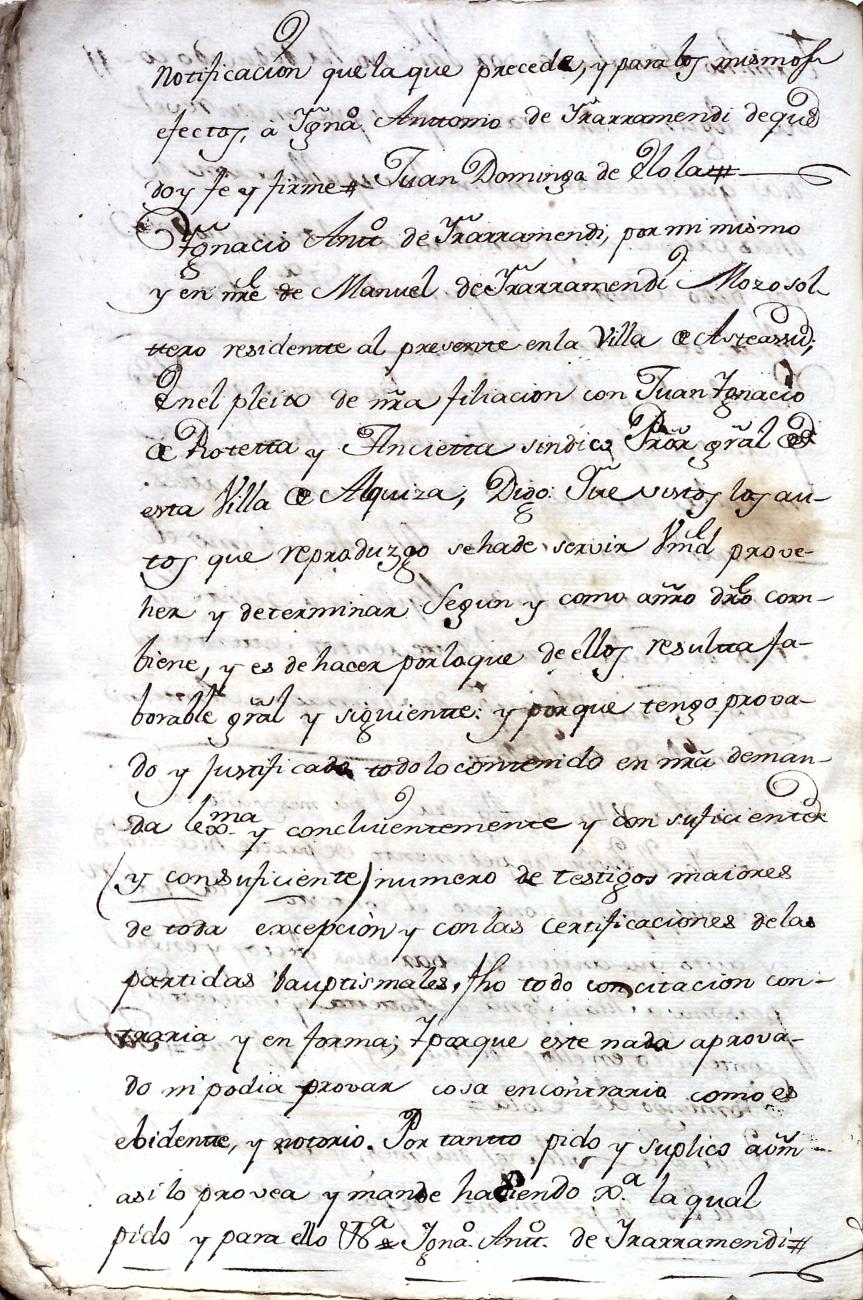 notificación que la que precede, y para los mismos
efectos, a Ygnaº Anttonio de Yrarramendi de que
doy fe y firme # Juan Domingo de Elola #
Ygnacio Anttº de Yrarramendi, por mi mismo
y en nre de Manuel de Yrarramendi Mozo sol-
ttero residentte al presente en la Villa de Asteassu,
En el pleito de nra filiacion con Juan Ygnacio
de Rotetta y Ancietta sindico Pror gral de
esta Villa de Alquiza, Digo. Que vistos los au-
tos que reproduzgo se ha de servir Vmd prove-
her y determinar Segun y como a nro dro com-
biene, y es de hacer por lo que de ellos resultta fa-
borable gral y siguientte: y porque tengo prova-
do y justificado todo lo contenido en nra deman-
da y concluientemente y con suficiente
(y con suficiente) numero de testigos maiores
de toda excepción y con las Certificaciones de las
partidas bauptismales, fho todo con citacion con-
traria y en forma; Y porque este nada a prova-
do ni podia provar cosa en contrario como es
ebidentte, y notorio. Por tantto pido y suplico a Vm
asi lo provea y mande haciendo xª la qual
pido y para ello Vª # Ygnº Anttº de Yrarramendi #